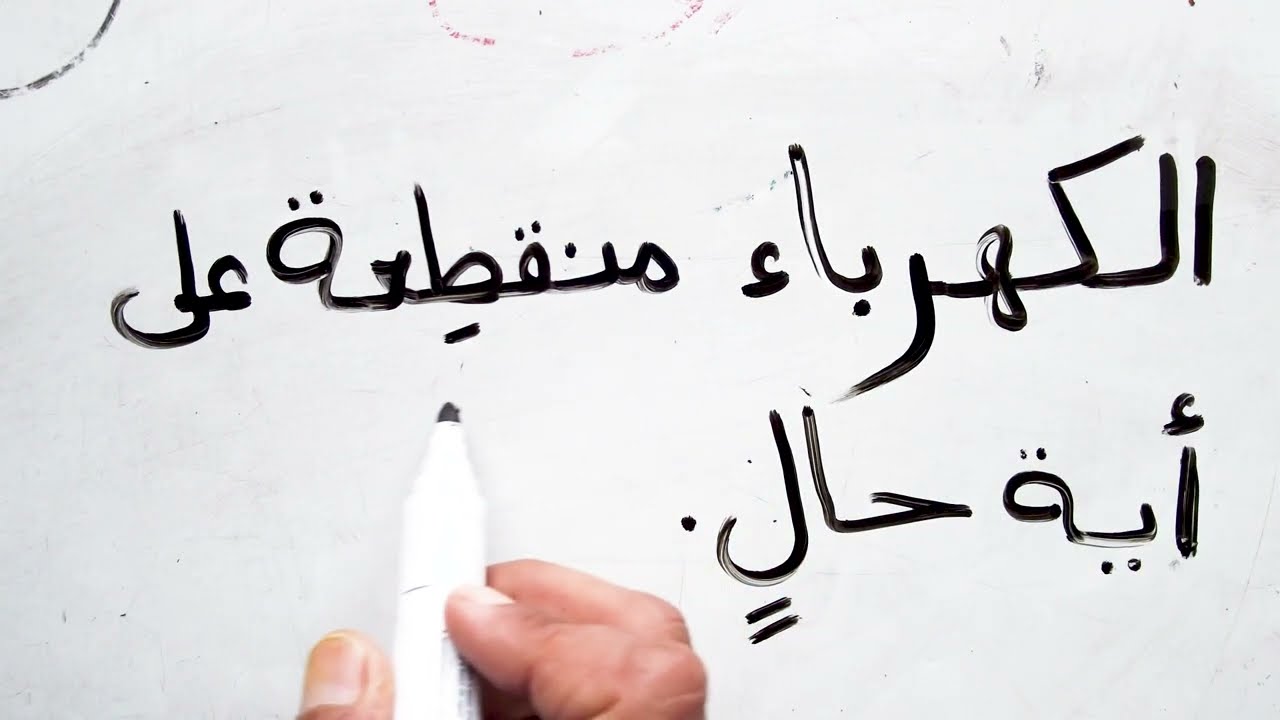 الكهرباء منقطِعة على
أية حالٍ.